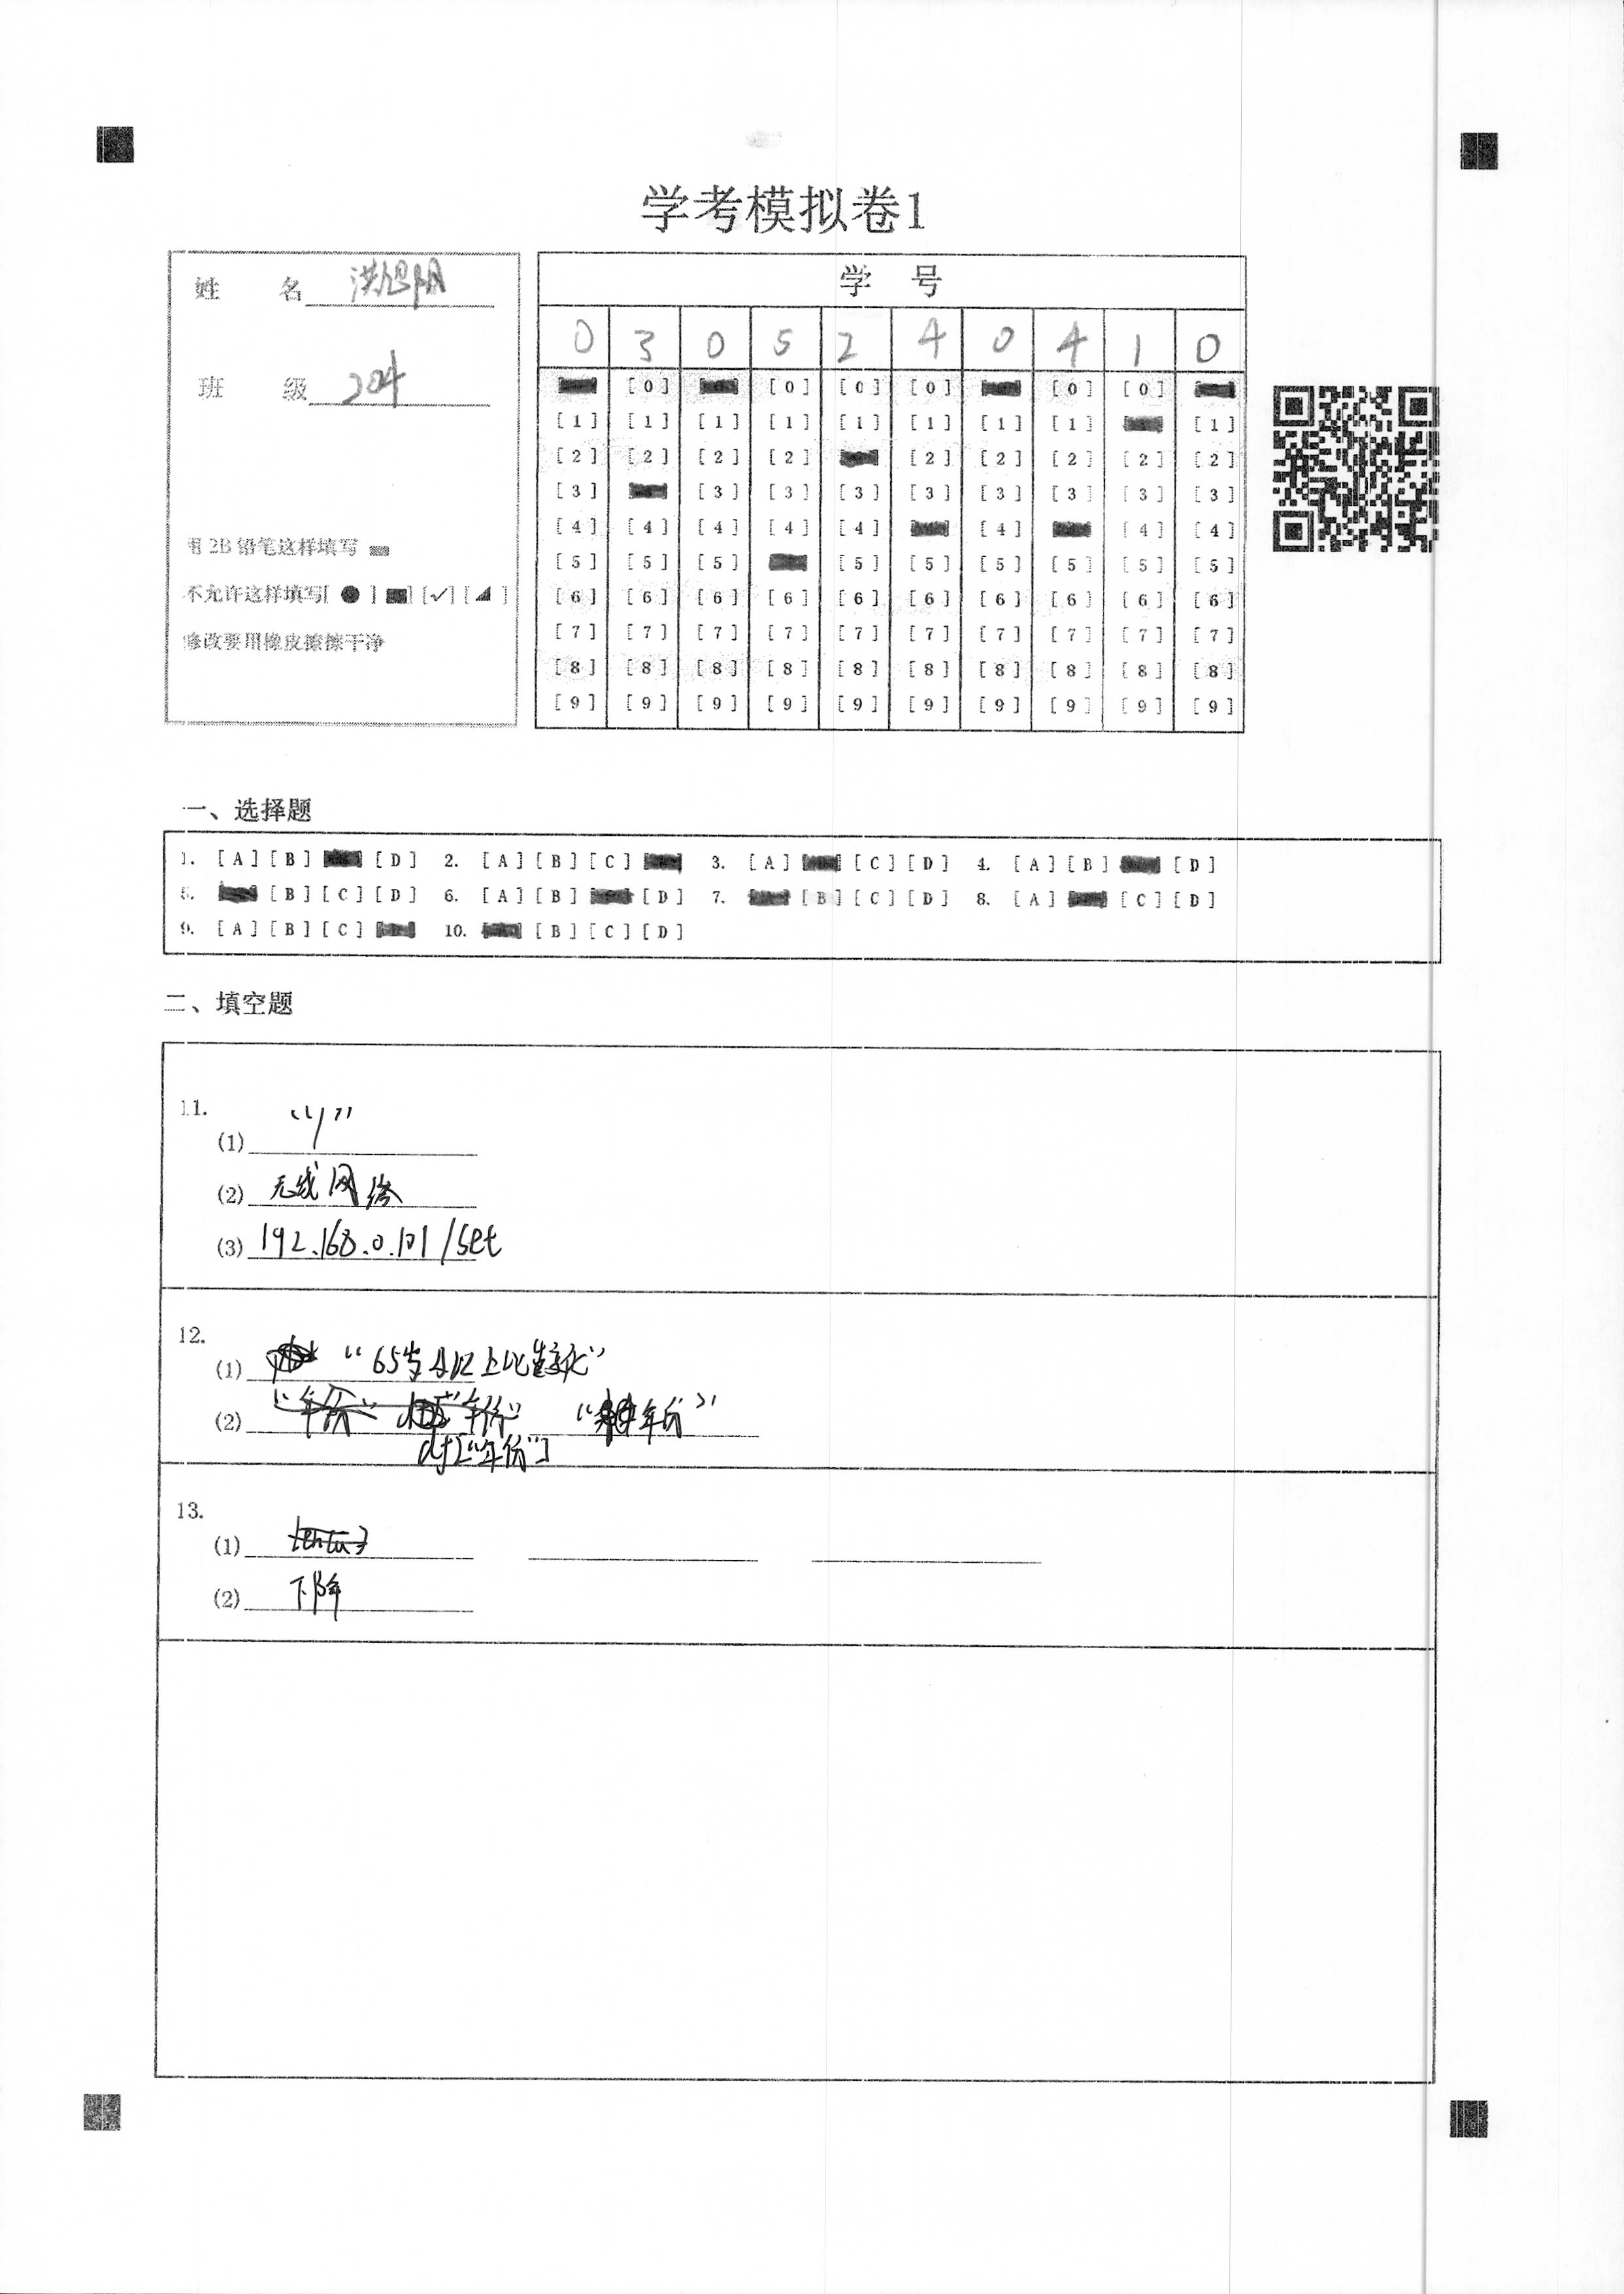 学考模拟卷1
姓 名 洪旭阳
班 级 204
用 2B 铅笔这样填写
不允许这样填写[ ● ] [✓] [ ]
修改要用橡皮擦擦干净
学 号
0 3 0 5 2 4 0 4 1 0
[0] [0] [0] [0] [0] [0]
[1] [1] [1] [1] [1] [1] [1] [1] [1]
[2] [2] [2] [2] [2] [2] [2] [2] [2]
[3] [3] [3] [3] [3] [3] [3] [3] [3]
[4] [4] [4] [4] [4] [4] [4] [4]
[5] [5] [5] [5] [5] [5] [5] [5] [5]
[6] [6] [6] [6] [6] [6] [6] [6] [6] [6]
[7] [7] [7] [7] [7] [7] [7] [7] [7] [7]
[8] [8] [8] [8] [8] [8] [8] [8] [8] [8]
[9] [9] [9] [9] [9] [9] [9] [9] [9] [9]
一、选择题
1. [A] [B] [D] 2. [A] [B] [C] 3. [A] [C] [D] 4. [A] [B] [D]
5. [B] [C] [D] 6. [A] [B] [D] 7. [B] [C] [D] 8. [A] [C] [D]
9. [A] [B] [C] 10. [B] [C] [D]
二、填空题
11.
(1) “1”
(2) 无线网络
(3) 192.168.0.101/set
12.
(1) “65岁及以上比重变化”
(2) “年份” “年份” “年份”
df[“年份”]
13.
(1)
(2) 下降